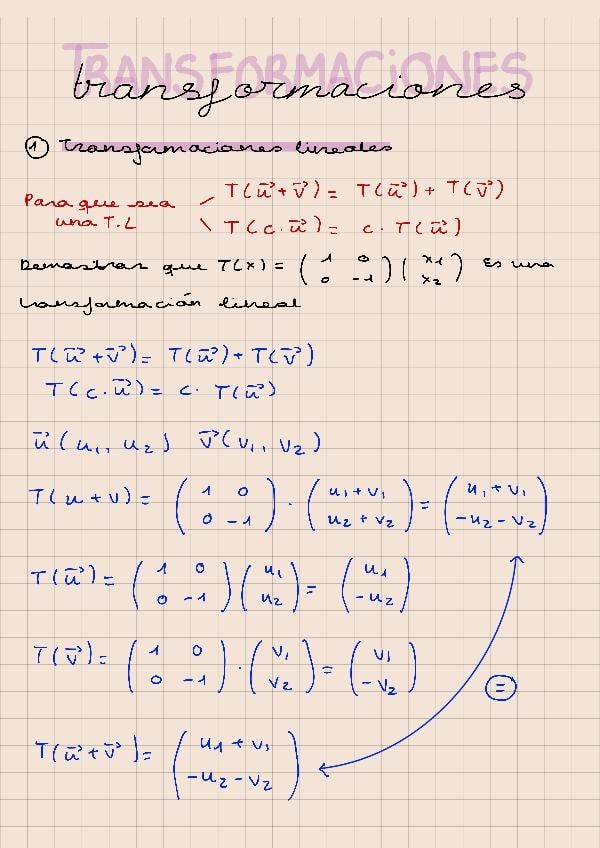 TRANSFORMACIONES
transformaciones
① Transformaciones lineales
Para que sea una T.L
T(u⃗+v⃗) = T(u⃗) + T(v⃗)
T(c·u⃗) = c · T(u⃗)
Demostrar que T(x) = (1 0; 0 -1)(x1; x2) es una
transformación lineal
T(u⃗+v⃗) = T(u⃗) + T(v⃗)
T(c·u⃗) = c · T(u⃗)
u⃗(u1, u2) v⃗(v1, v2)
T(u+v) = (1 0; 0 -1) · (u1+v1; u2+v2) = (u1+v1; -u2-v2)
T(u⃗) = (1 0; 0 -1)(u1; u2) = (u1; -u2)
T(v⃗) = (1 0; 0 -1) · (v1; v2) = (v1; -v2)
=
T(u⃗+v⃗) = (u1+v1; -u2-v2)